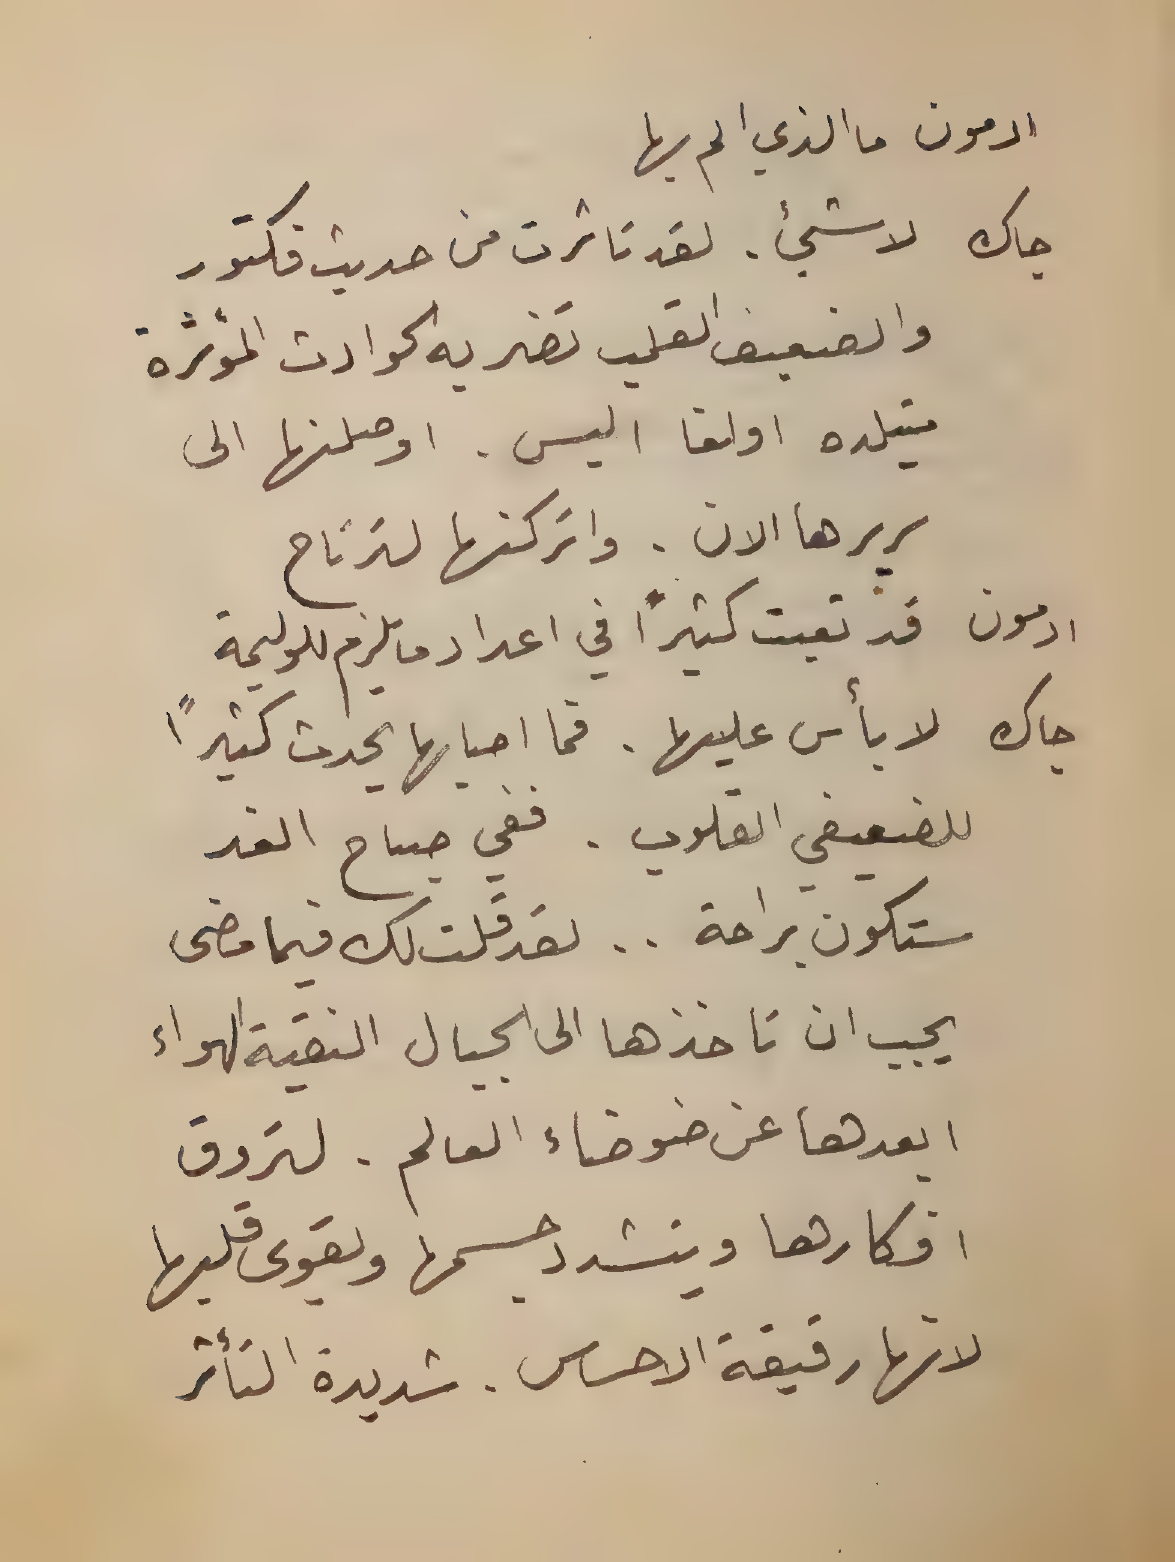 ادمون ما الذي الم بها
جاك لا شيئ . لقد تاثرت من حديث فكتور
والضعيف القلب تضر به الحوادث المؤثرة
اليس . اوصلنها الى
سريرها الان . واتركنها لترتاح
ادمون قد تعبت كثيرًا في اعداد ما يلزم للوليمة
جاك لا بأس عليها . فما اصابها يحدث كثيرًا
للضعيفي القلوب . ففي صباح الغد
ستكون براحة .. لقد قلت لك فيما مضى
يجب ان تاخذها الى الجبال النقية الهواء
ابعدها عن ضوضاء العالم . لتروق
افكارها ويتشدد جسمها ويقوى قلبها
لانها رقيقة الاحساس . شديدة التأثر